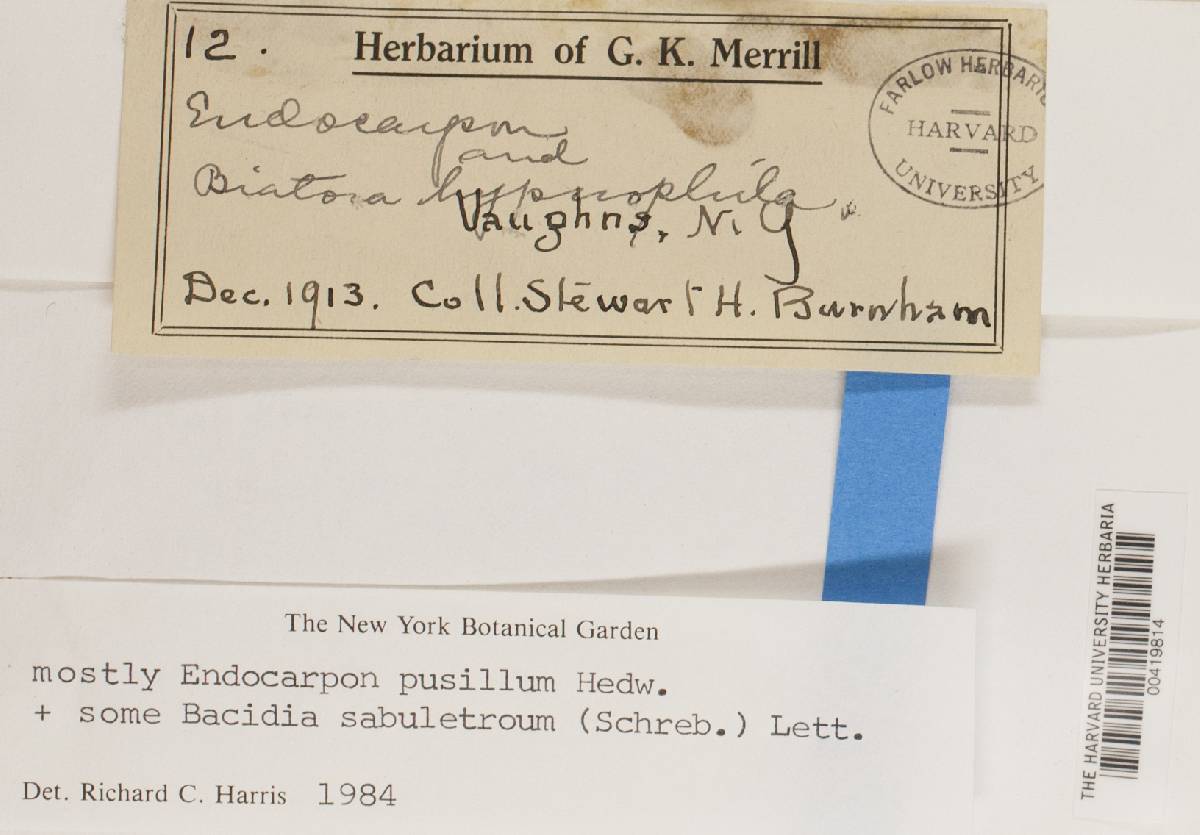 12. Herbarium of G. K. Merrill
FARLOW HERBARIU
HARVARD
UNIVERSITY
Endocarpon
and
Biatora hypnophila
Vaughns, N. Y
Dec. 1913. Coll. Stewart H. Burnham
The New York Botanical Garden
mostly Endocarpon pusillum Hedw.
+ some Bacidia sabuletroum (Schreb.) Lett.
Det. Richard C. Harris 1984
THE HARVARD UNIVERSITY HERBARIA
00419814